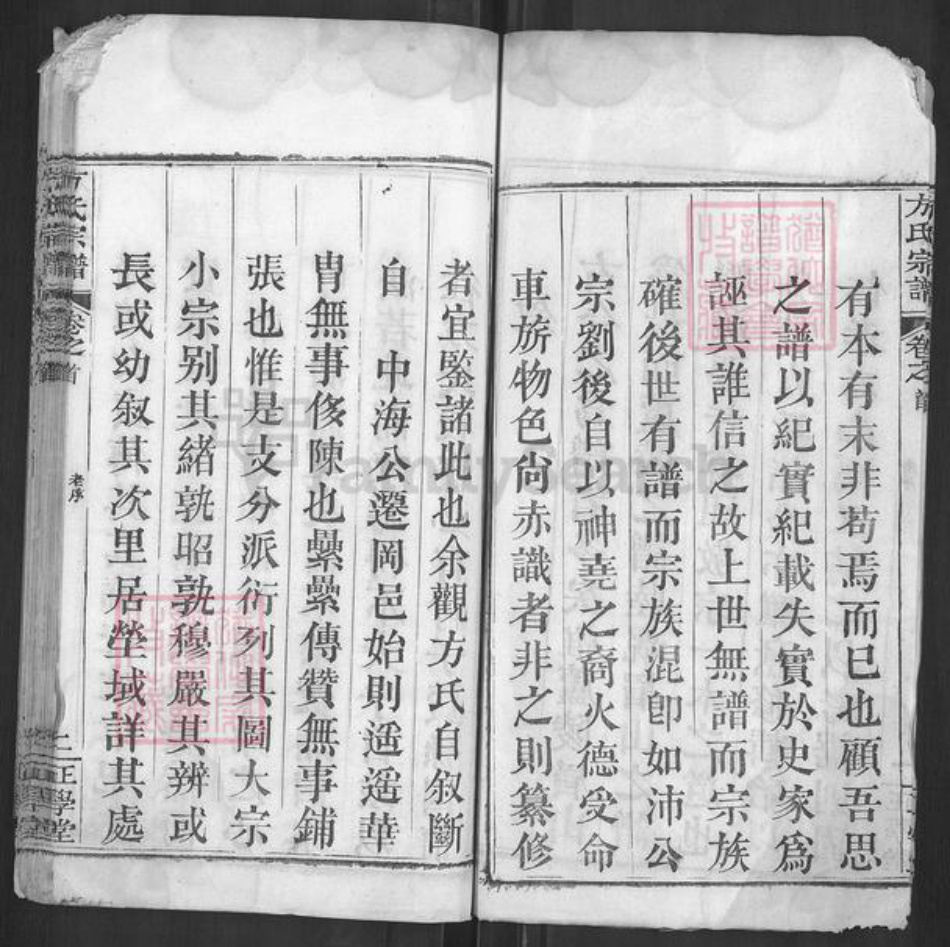 方氏宗譜
卷之首
有本有末非苟焉而已也顧吾思
之譜以紀實紀載失實於史家爲
誣其誰信之故上世無譜而宗族
確後世有譜而宗族混卽如沛公
宗劉後自以神堯之裔火德受命
車旂物色尙赤識者非之則纂修
者宜鑒諸此也余觀方氏自叙斷
自 中海公遷岡邑始則遥遥華
胄無事侈陳也纍纍傳贊無事鋪
張也惟是支分派衍列其圖大宗
小宗别其緒孰昭孰穆嚴其辨或
長或幼叙其次里居塋域詳其處
方氏宗譜
卷之首
老序
二
正學堂
FamilySearch